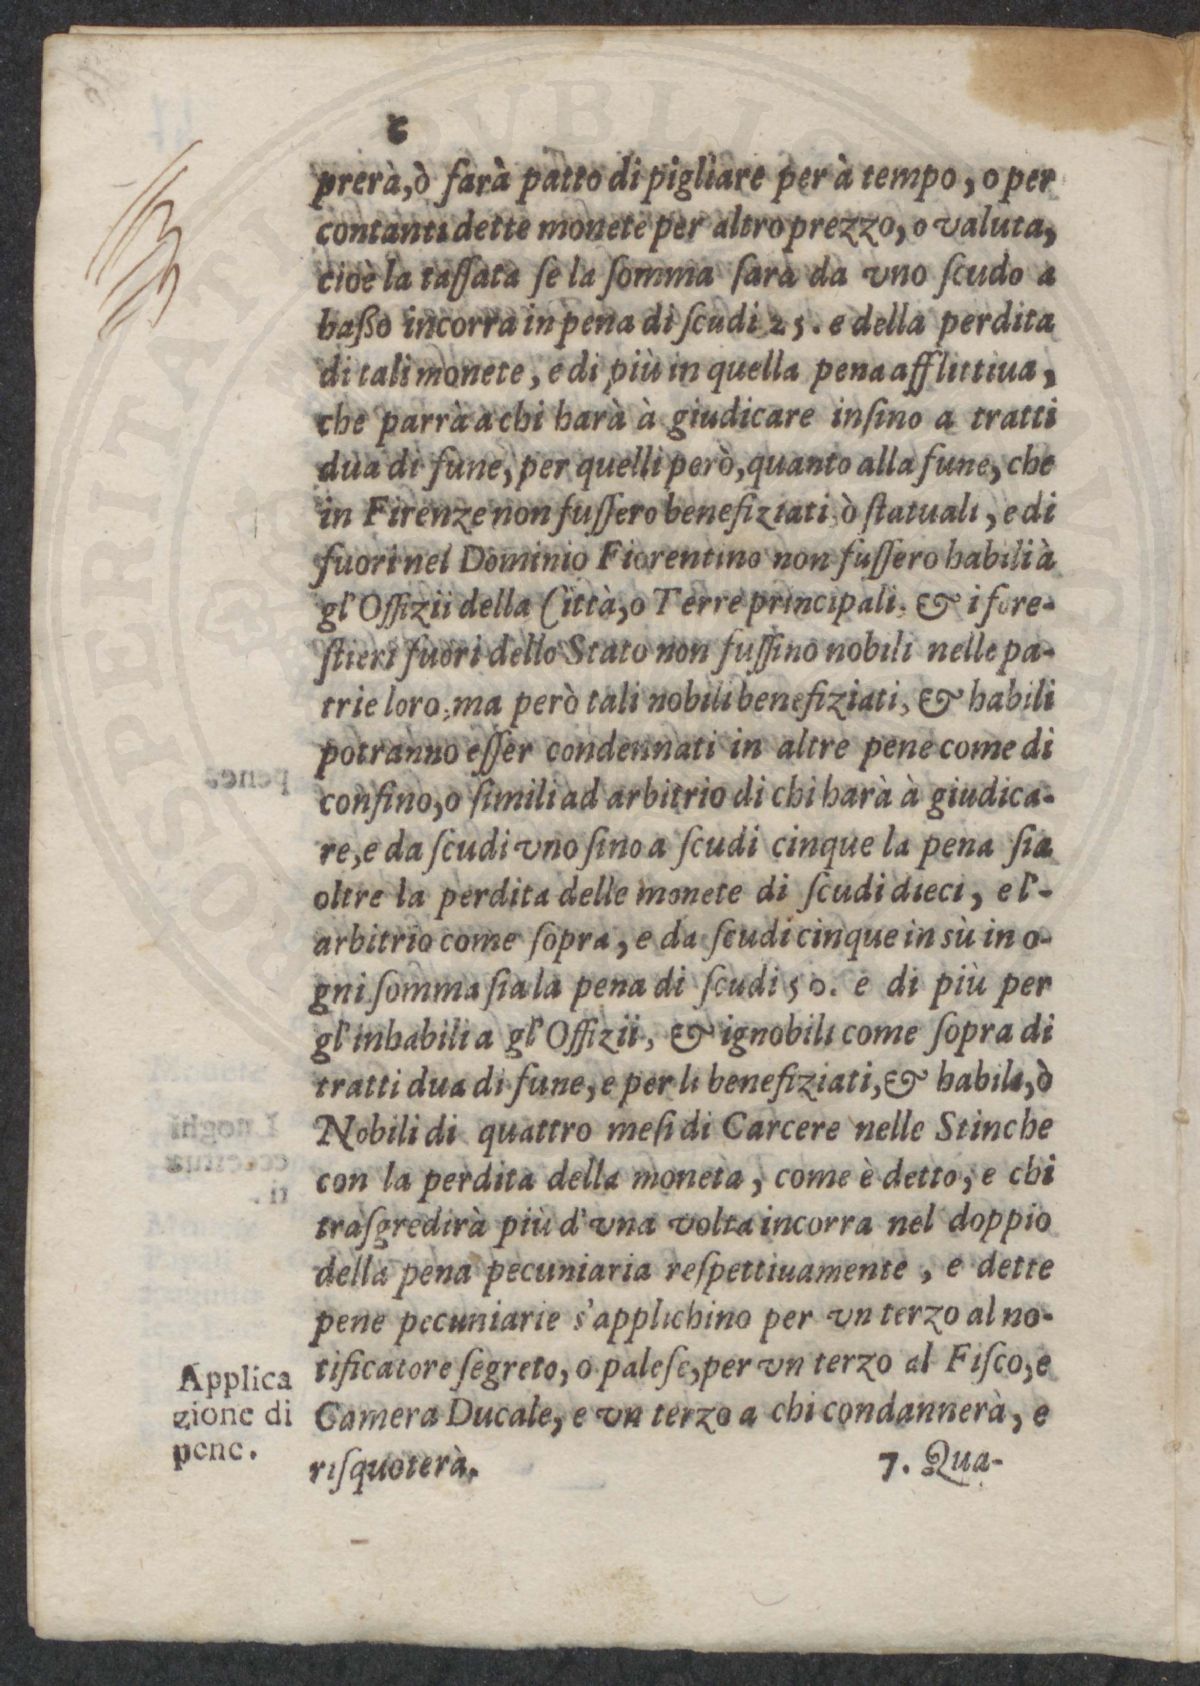 6
prerà, ò farà patto di pigliare per à tempo, o per
contanti dette monete per altro prezzo, o valuta,
cioè la taſſata ſe la ſomma ſarà da vno ſcudo a
baßo incorra in pena di ſcudi 25. e della perdita
di tali monete, e di più in quella pena afflittiua,
che parrà a chi harà à giudicare inſino a tratti
dua di fune, per quelli però, quanto alla fune, che
in Firenze non fuſſero benefiziati, ò ſtatuali, e di
fuori nel Dominio Fiorentino non fuſſero habili à
gl'Offizii della Città, o Terre principali, & i fore-
ſtieri fuori dello Stato non fuſſino nobili nelle pa-
trie loro, ma però tali nobili benefiziati, & habili
potranno eſſer condennati in altre pene come di
confino, o ſimili ad arbitrio di chi harà à giudica-
re, e da ſcudi vno ſino a ſcudi cinque la pena ſia
oltre la perdita delle monete di ſcudi dieci, e l'-
arbitrio come ſopra, e da ſcudi cinque in sù in o-
gni ſomma ſia la pena di ſcudi 50. e di più per
gl'inhabili a gl'Offizii, & ignobili come ſopra di
tratti dua di fune, e per li benefiziati, & habili, ò
Nobili di quattro meſi di Carcere nelle Stinche
con la perdita della moneta, come è detto, e chi
traſgredirà più d'vna volta incorra nel doppio
della pena pecuniaria reſpettiuamente, e dette
pene pecuniarie s'applichino per vn terzo al no-
tificatore ſegreto, o paleſe, per vn terzo al Fiſco, e
Camera Ducale, e vn terzo a chi condannerà, e
riſquoterà.
Applica
zione di
pene.
7. Qua-